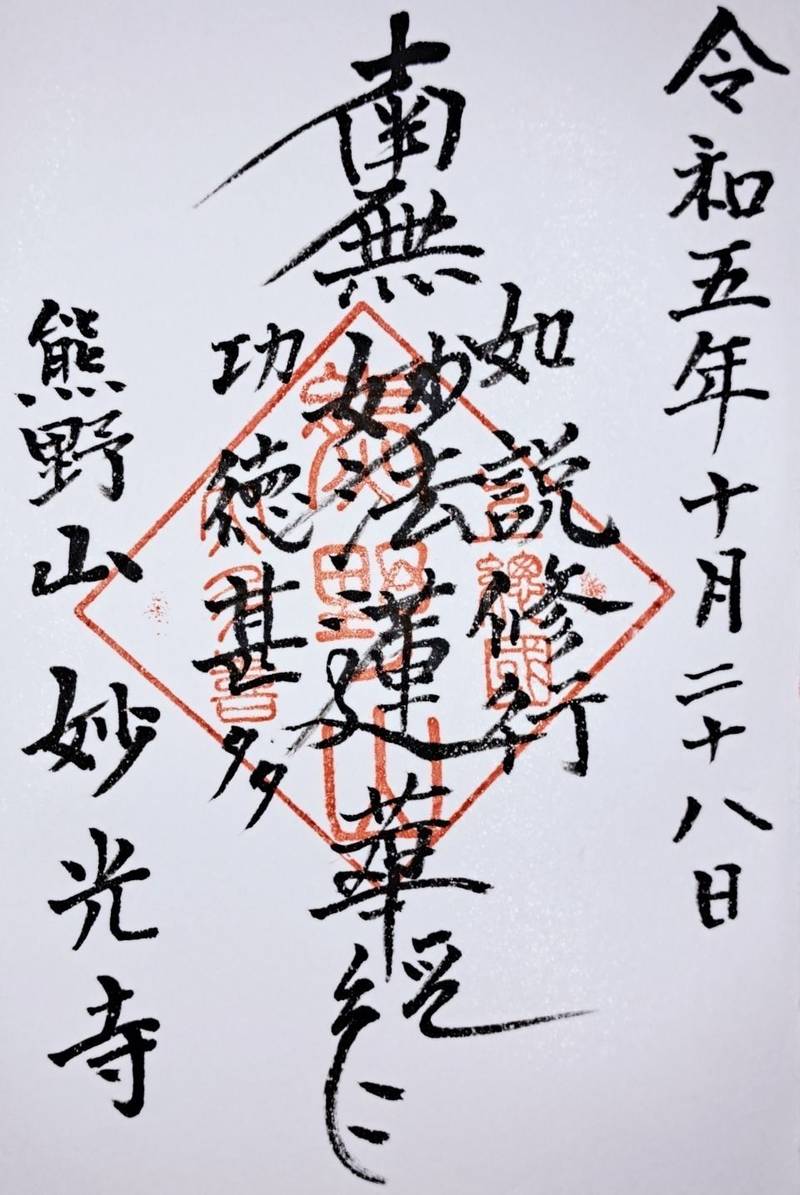 令和五年十月二十八日
如説修行
南無妙法蓮華経
功徳甚多
熊野山 妙光寺
熊野山